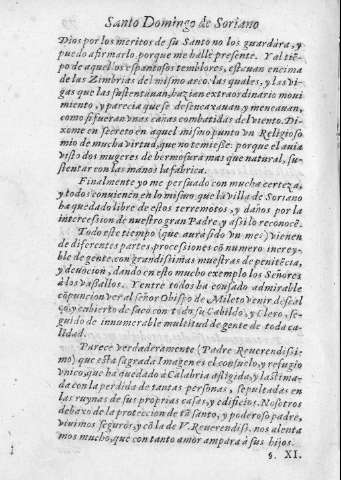 Santo Domingo de Soriano
Dios por los meritos de su Santo no los guardára, y
puedo afirmarlo, porque me hallè presente. Y al tiē-
po de aquellos espantosos temblores, estauan encima
de las Zimbrias del mismo arco, las quales, y las vi-
gas que las sustentauan, hazian extraordinario moui
miento, y parecia que se desencaxauan, y meneauan,
como si fueran vnas cañas combatidas del viento. Di-
xome en secreto en aquel mismo punto vn Religioso
mio de mucha virtud, que no temiesse: porque el auia
visto dos mugeres de hermosura mas que natural, su-
stentar con las manos la fabrica.
Finalmente yo me persuado con mucha certeza,
y todos conuienen en lo mismo, que la villa de Soriano
ha quedado libre de estos terremotos, y daños por la
intercession de nuestro gran Padre, y assi lo reconocē.
Todo este tiempo (que aurá sido vn mes) vienen
de diferentes partes, processiones cō numero increy-
ble de gente, con grandissimas muestras de penitēcia,
y deuocion, dando en esto mucho exemplo los Señores
à los vassallos. Y entre todos ha causado admirable
cōpuncion ver al señor Obispo de Mileto venir, descal
ço, y cubierto de saco con todo su Cabildo, y Clero, se-
guido de innumerable multitud de gente de toda ca-
lidad.
Parece verdaderamente (Padre Reuerendissi-
mo) que esta sagrada Imagen es el consuelo, y refugio
vnico, que ha quedado à Calabria afligida, y lastima-
da con la perdida de tantas personas, sepultadas en
las ruynas de sus proprias casas, y edificios. Nosotros
debaxo de la proteccion de tā santo, y poderoso padre,
viuimos seguros, y cō la de V. Reuerendiss. nos alenta
mos mucho, que con tanto amor ampara à sus hijos.
§. XI.